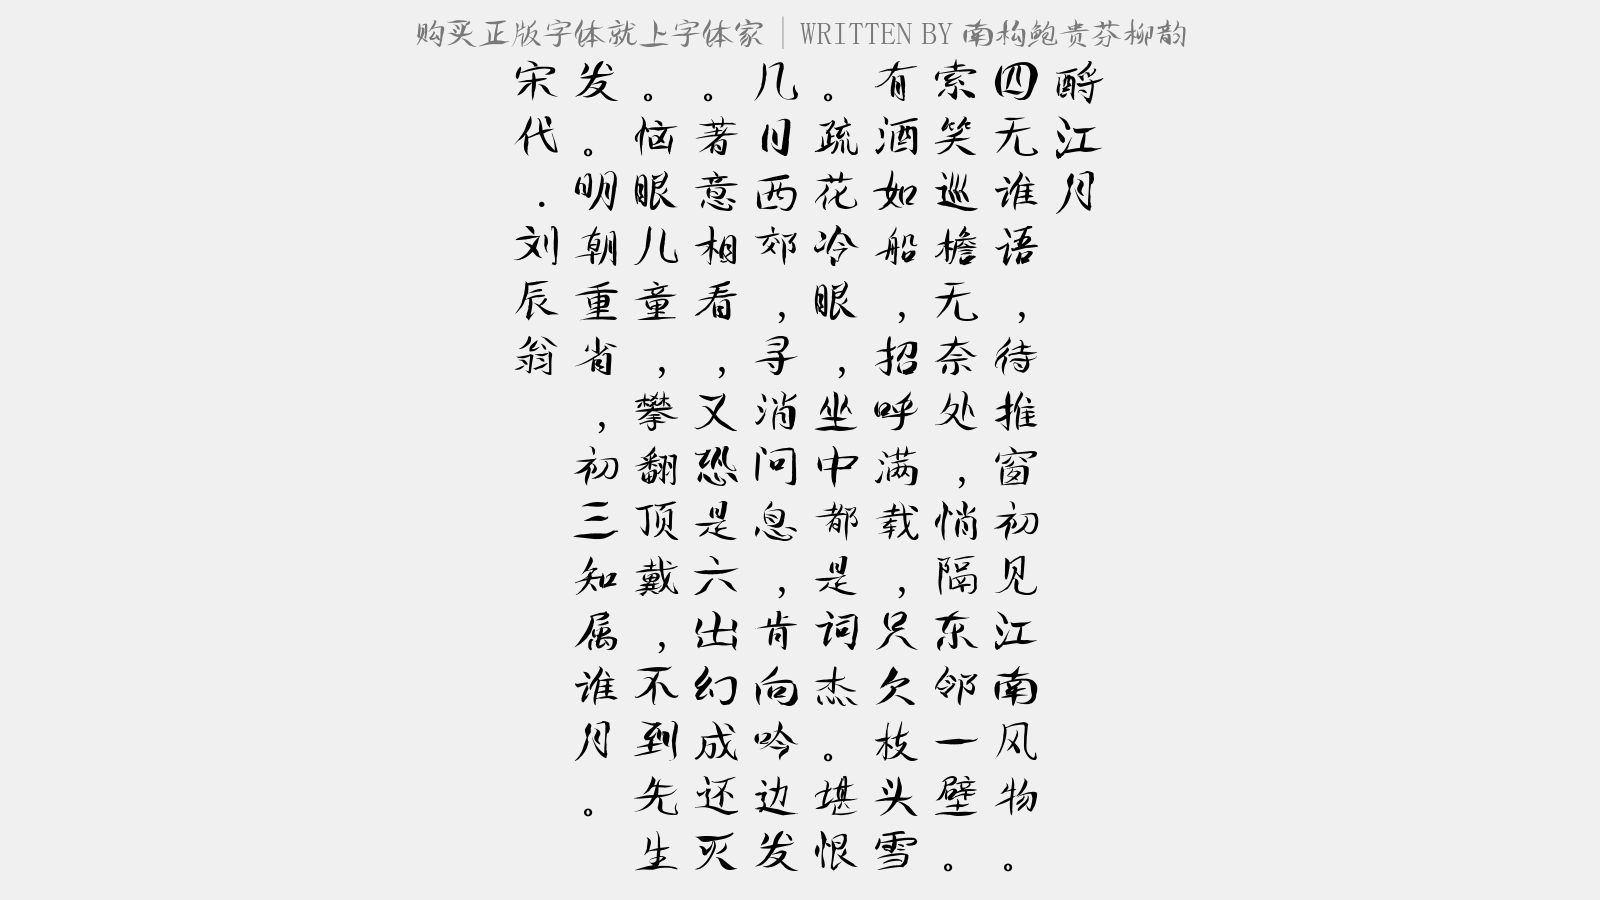 购买正版字体就上字体家｜WRITTEN BY 南构鲍贵芬柳韵
酹江月
四无谁语，待推窗初见江南风物。
索笑巡檐无奈处，悄隔东邻一壁。
有酒如船，招呼满载，只欠枝头雪
。疏花冷眼，坐中都是词杰。堪恨
几日西郊，寻消问息，肯向吟边发
。著意相看，又恐是六出幻成还灭
。恼眼儿童，攀翻顶戴，不到先生
发。明朝重省，初三知属谁月。
宋代.刘辰翁